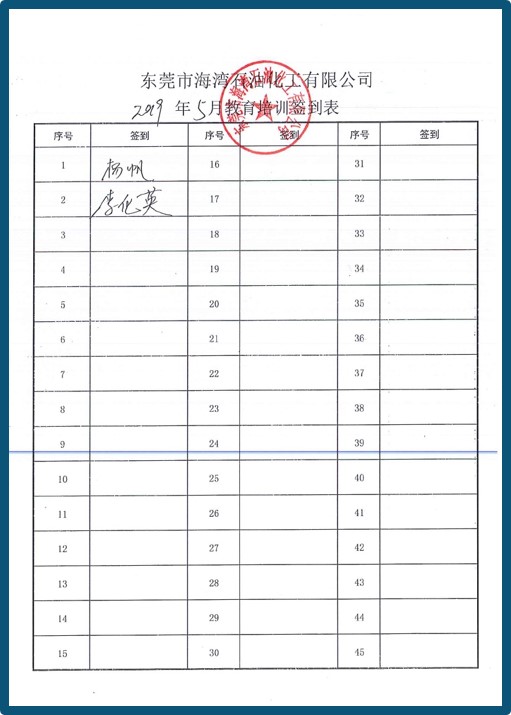 东莞市海湾石油化工有限公司
2019 年 5 月教育培训签到表
序号 签到 序号 签到 序号 签到
1 杨帆 16 31
2 李化英 17 32
3 18 33
4 19 34
5 20 35
6 21 36
7 22 37
8 23 38
9 24 39
10 25 40
11 26 41
12 27 42
13 28 43
14 29 44
15 30 45
东莞市海湾石油化工有限公司